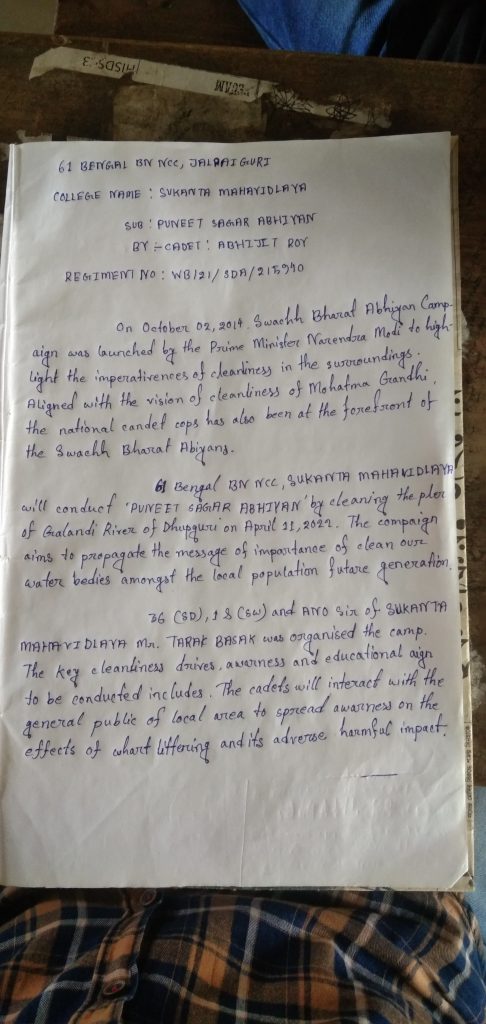 HISDS-3
61 BENGAL BN NCC, JALPAIGURI
COLLEGE NAME : SUKANTA MAHAVIDLAYA
SUB : PUNEET SAGAR ABHIYAN
BY :- CADET : ABHIJIT ROY
REGIMENT NO : WB/21/SDA/215940
On October 02, 2014. Swachh Bharat Abhiyan Camp-
aign was launched by the Prime Minister Narendra Modi to high-
light the imperativences of cleanliness in the surroundings.
Aligned with the vision of cleanliness of Mohatma Grandhi,
the national candet cops has also been at the forefront of
the Swachh Bharat Abiyans.
61 Bengal BN NCC, SUKANTA MAHAVIDLAYA
will conduct 'PUNEET SAGAR ABHIYAN' by cleaning the pler
of Gralandi River of Dhupguri on April 11, 2022. The compaign
aims to propagate the message of importance of clean our
water bedies amongst the local population future generation.
36 (SD), 18 (SW) and ANO sir of SUKANTA
MAHAVIDLAYA Mr. TARAK BASAK was organised the camp.
The key cleanliness drives, awarness and educational aign
to be conducted includes. The cadets will interact with the
general public of local area to spread awarness on the
effects of whart littering and its adverse harmful impact.